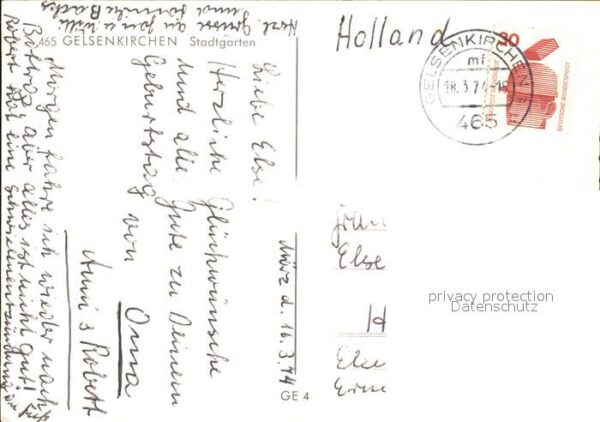 465 GELSENKIRCHEN Stadtgarten
Holland
GELSENKIRCHEN
mf
18.3.74-16
465
30
DEUTSCHE BUNDESPOST
März d. 16.3.74
Liebe Else!
Herzliche Glückwünsche
und alle Gute zu Deinem
Geburtstag von Oma
Anni & Robert
Morgen fahre ich wieder nach
Bottrop aber alles ist nicht gut!
Robert hat eine Sehnenentzündung am
Herzl. Grüsse an Jan u. Willi
und Familie
Frau
Else
H
privacy protection
Datenschutz
GE 4